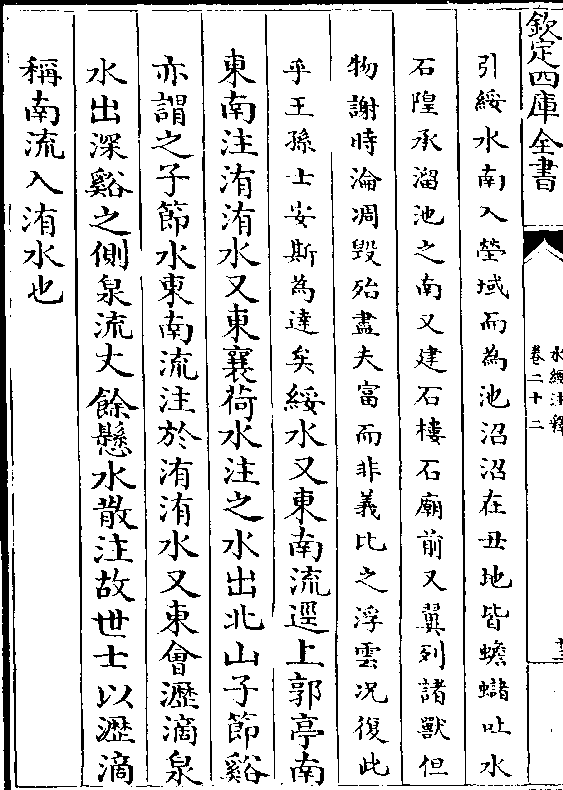 欽定四庫全書
水經注釋
卷二十二
引綏水南入塋域而為池沼沼在丑地皆蟾蠩吐水
石隍承溜池之南又建石樓石廟前又翼列諸獸但
物謝時淪凋毀殆盡夫富而非義比之浮雲况復此
乎王孫士安斯為達矣綏水又東南流逕上郭亭南
東南注洧洧水又東襄荷水注之水出北山子節谿
亦謂之子節水東南流注於洧洧水又東會瀝滴泉
水出深谿之側泉流丈餘懸水散注故世士以瀝滴
稱南流入洧水也